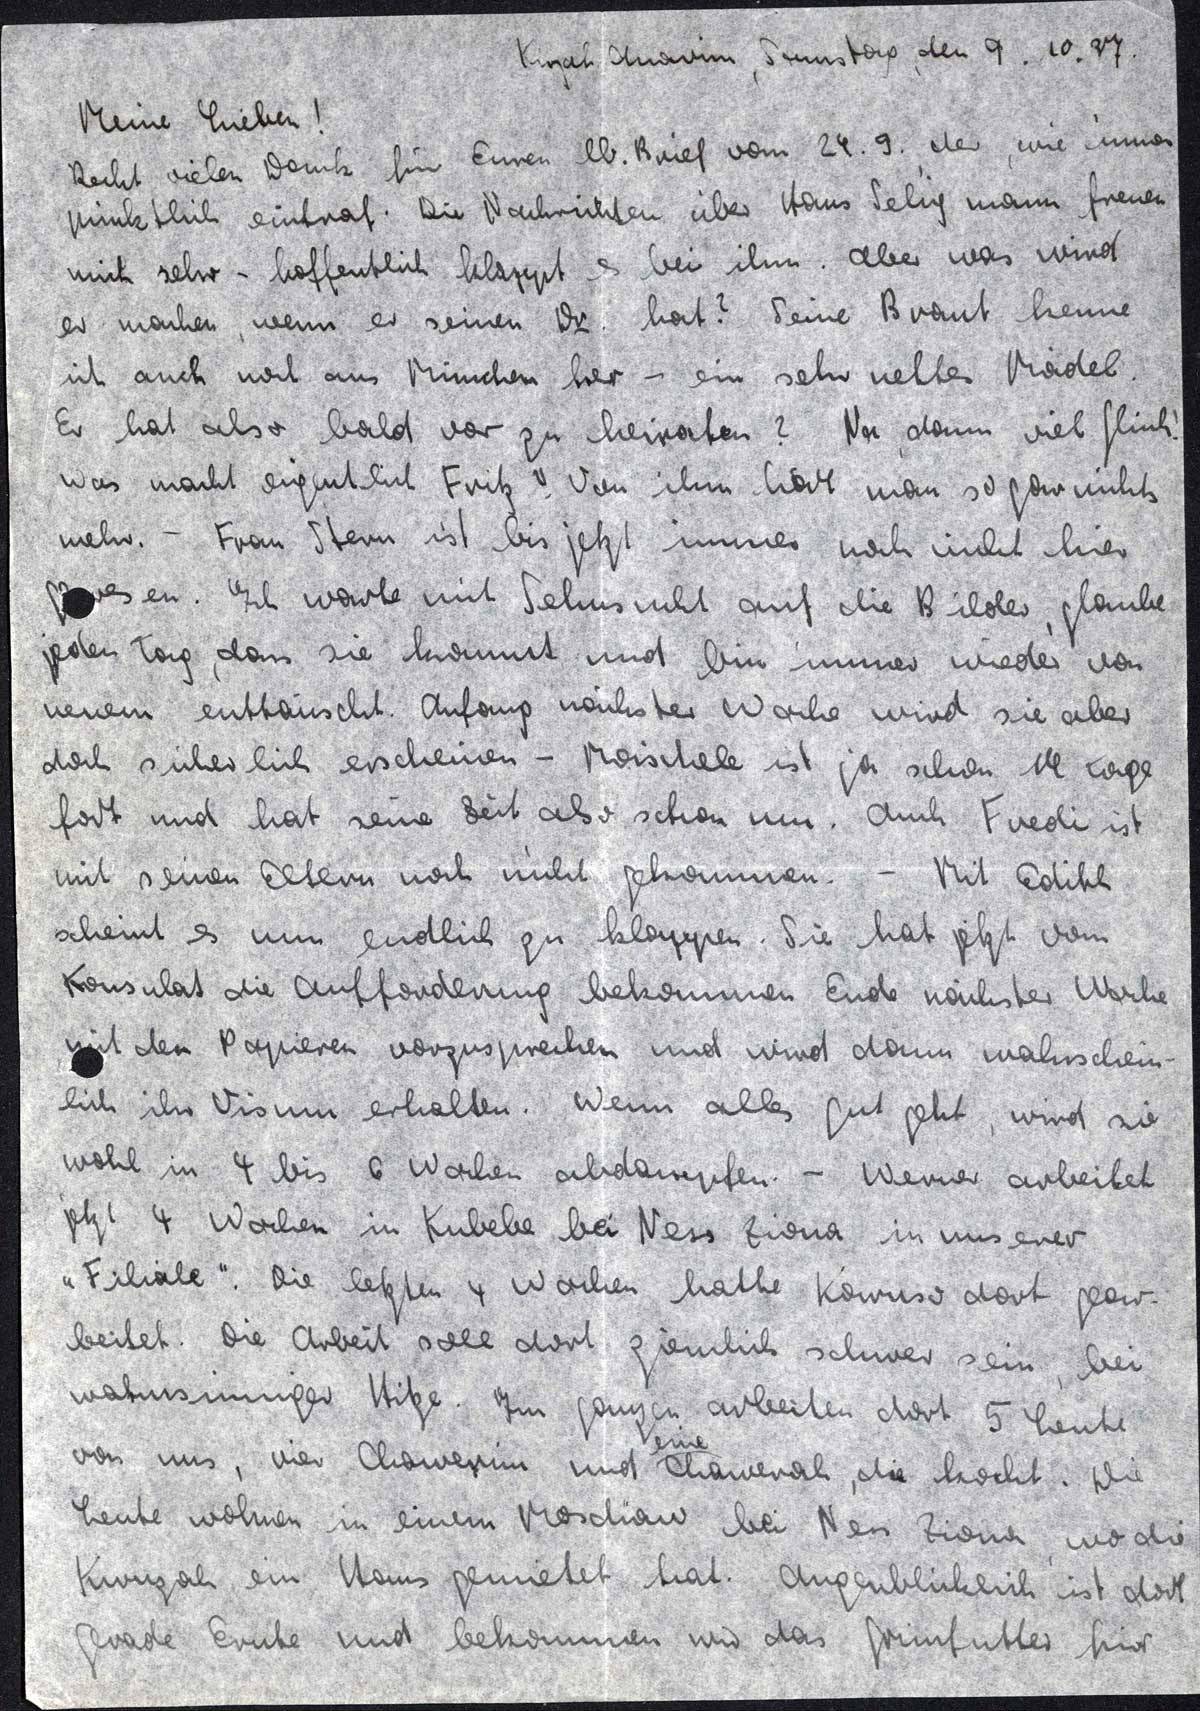 Kirjath Anavim, Samstag, den 9. 10. 37.
Meine Lieben!
Recht vielen Dank für Euren lb. Brief vom 24. 9. der, wie immer
pünktlich eintraf. Die Nachrichten über Hans Seligmann freuen
mich sehr - hoffentlich klappt es bei ihm. Aber was wird
er machen, wenn er seinen Dr. hat? Seine Braut kenne
ich auch noch aus München her - ein sehr nettes Mädel.
Er hat also bald vor zu heiraten? Na, dann viel Glück!
Was macht eigentlich Fritz? Von ihm hört man so gar nichts
mehr. - Frau Stern ist bis jetzt immer noch nicht hier
gewesen. Ich warte mit Sehnsucht auf die Bilder, glaube
jeden Tag, dass sie kommt und bin immer wieder von
neuem enttäuscht. Anfang nächster Woche wird sie aber
doch sicherlich erscheinen - Moischele ist ja schon 14 Tage
fort und hat seine Zeit also schon um. Auch Fredi ist
mit seinen Eltern noch nicht gekommen. - Mit Edith
scheint es nun endlich zu klappen. Sie hat jetzt vom
Konsulat die Aufforderung bekommen Ende nächster Woche
mit den Papieren vorzusprechen und wird dann wahrschein-
lich ihr Visum erhalten. Wenn alles gut geht, wird sie
wohl in 4 bis 6 Wochen abdampfen. - Werner arbeitet
jetzt 4 Wochen in Kubebe bei Ness Ziona in unserer
"Filiale". Die letzten 4 Wochen hatte Karuso dort gear-
beitet. Die Arbeit soll dort ziemlich schwer sein, bei
wahnsinniger Hitze. Im ganzen arbeiten dort 5 Leute
von uns, vier Chawerim und eine Chawerah, die kocht. Die
Leute wohnen in einem Moschaw bei Ness Ziona, wo die
Kwuzah ein Haus gemietet hat. Augenblicklich ist dort
gerade Ernte und bekommen wir das Grünfutter hier